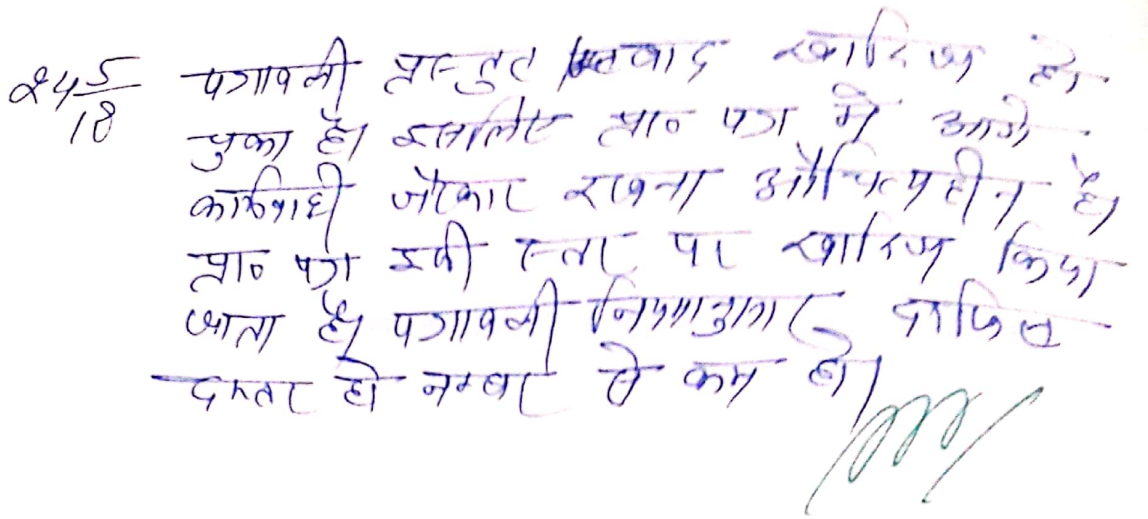 24/5/18 पत्रावली प्रस्तुत वाद खारिज हो
चुका है। इसलिए प्रा० पत्र में आगे
कार्यवाही जेरकार रखना औचित्यहीन है।
प्रा० पत्र इसी स्तर पर खारिज किया
जाता है। पत्रावली नियमानुसार दाखिल
दफ्तर हो नम्बर से कम हो।